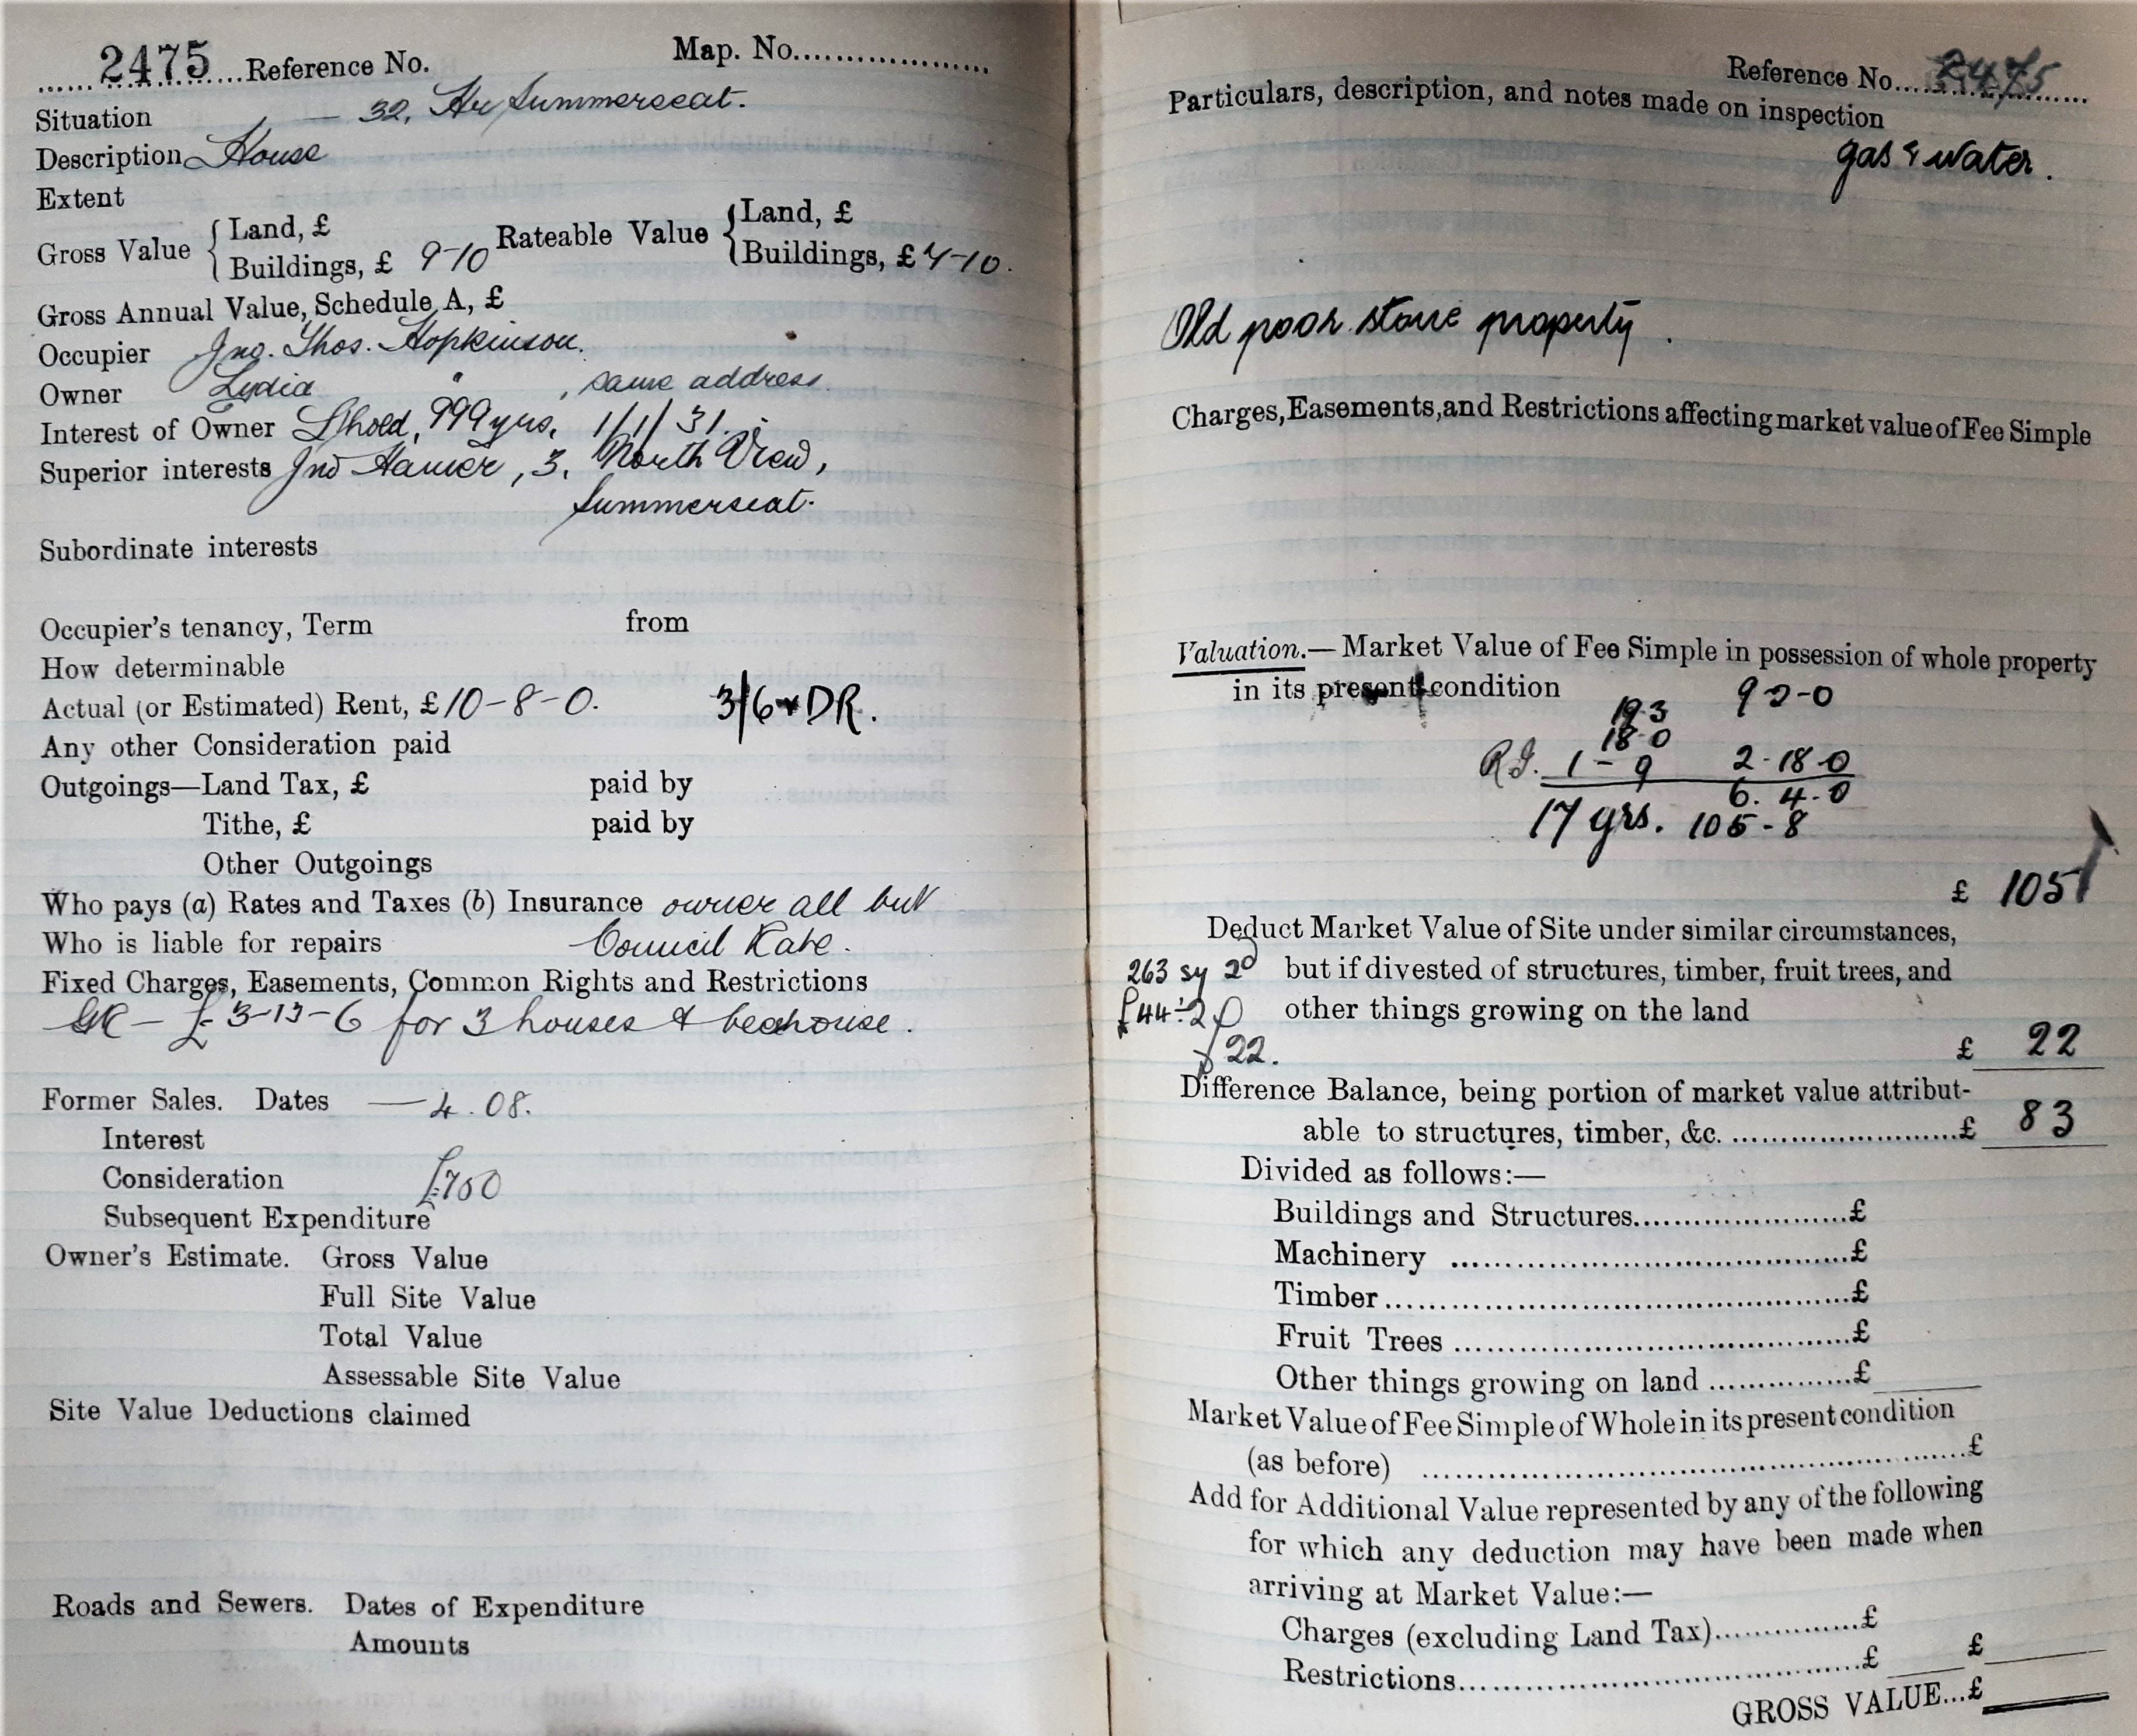 2475 Reference No. Map. No.
Situation — 32, Hr Summerseat.
Description House
Extent
Gross Value { Land, £ Rateable Value { Land, £
Buildings, £ 9-10 Buildings, £ 7-10.
Gross Annual Value, Schedule A, £
Occupier Jno. Thos. Hopkinson.
Owner Lydia " , same address.
Interest of Owner Lhold, 999 yrs, 1/1/31.
Superior interests Jno Hamer, 3, North View,
Summerseat.
Subordinate interests
Occupier's tenancy, Term from
How determinable
Actual (or Estimated) Rent, £10-8-0. 3/6 DR.
Any other Consideration paid
Outgoings—Land Tax, £ paid by
Tithe, £ paid by
Other Outgoings
Who pays (a) Rates and Taxes (b) Insurance owner all but
Who is liable for repairs Council Rate.
Fixed Charges, Easements, Common Rights and Restrictions
GR — £3-13-6 for 3 houses &
Former Sales. Dates — 4.08.
Interest
Consideration £700
Subsequent Expenditure
Owner's Estimate. Gross Value
Full Site Value
Total Value
Assessable Site Value
Site Value Deductions claimed
Roads and Sewers. Dates of Expenditure
Amounts
Reference No. 2475
Particulars, description, and notes made on inspection
gas & water.
Old poor stone property.
Charges, Easements, and Restrictions affecting market value of Fee Simple
Valuation.—Market Value of Fee Simple in possession of whole property
in its present condition 9 2-0
19-3
18-0
1-9 2-18-0
6. 4-0
17 yrs. 105-8
£ 105
Deduct Market Value of Site under similar circumstances,
263 sy 2d but if divested of structures, timber, fruit trees, and
£44÷2 other things growing on the land
£22. £ 22
Difference Balance, being portion of market value attribut-
able to structures, timber, &c. £ 83
Divided as follows:—
Buildings and Structures £
Machinery £
Timber £
Fruit Trees £
Other things growing on land £
Market Value of Fee Simple of Whole in its present condition
(as before) £
Add for Additional Value represented by any of the following
for which any deduction may have been made when
arriving at Market Value:—
Charges (excluding Land Tax) £
Restrictions £ £
GROSS VALUE...£